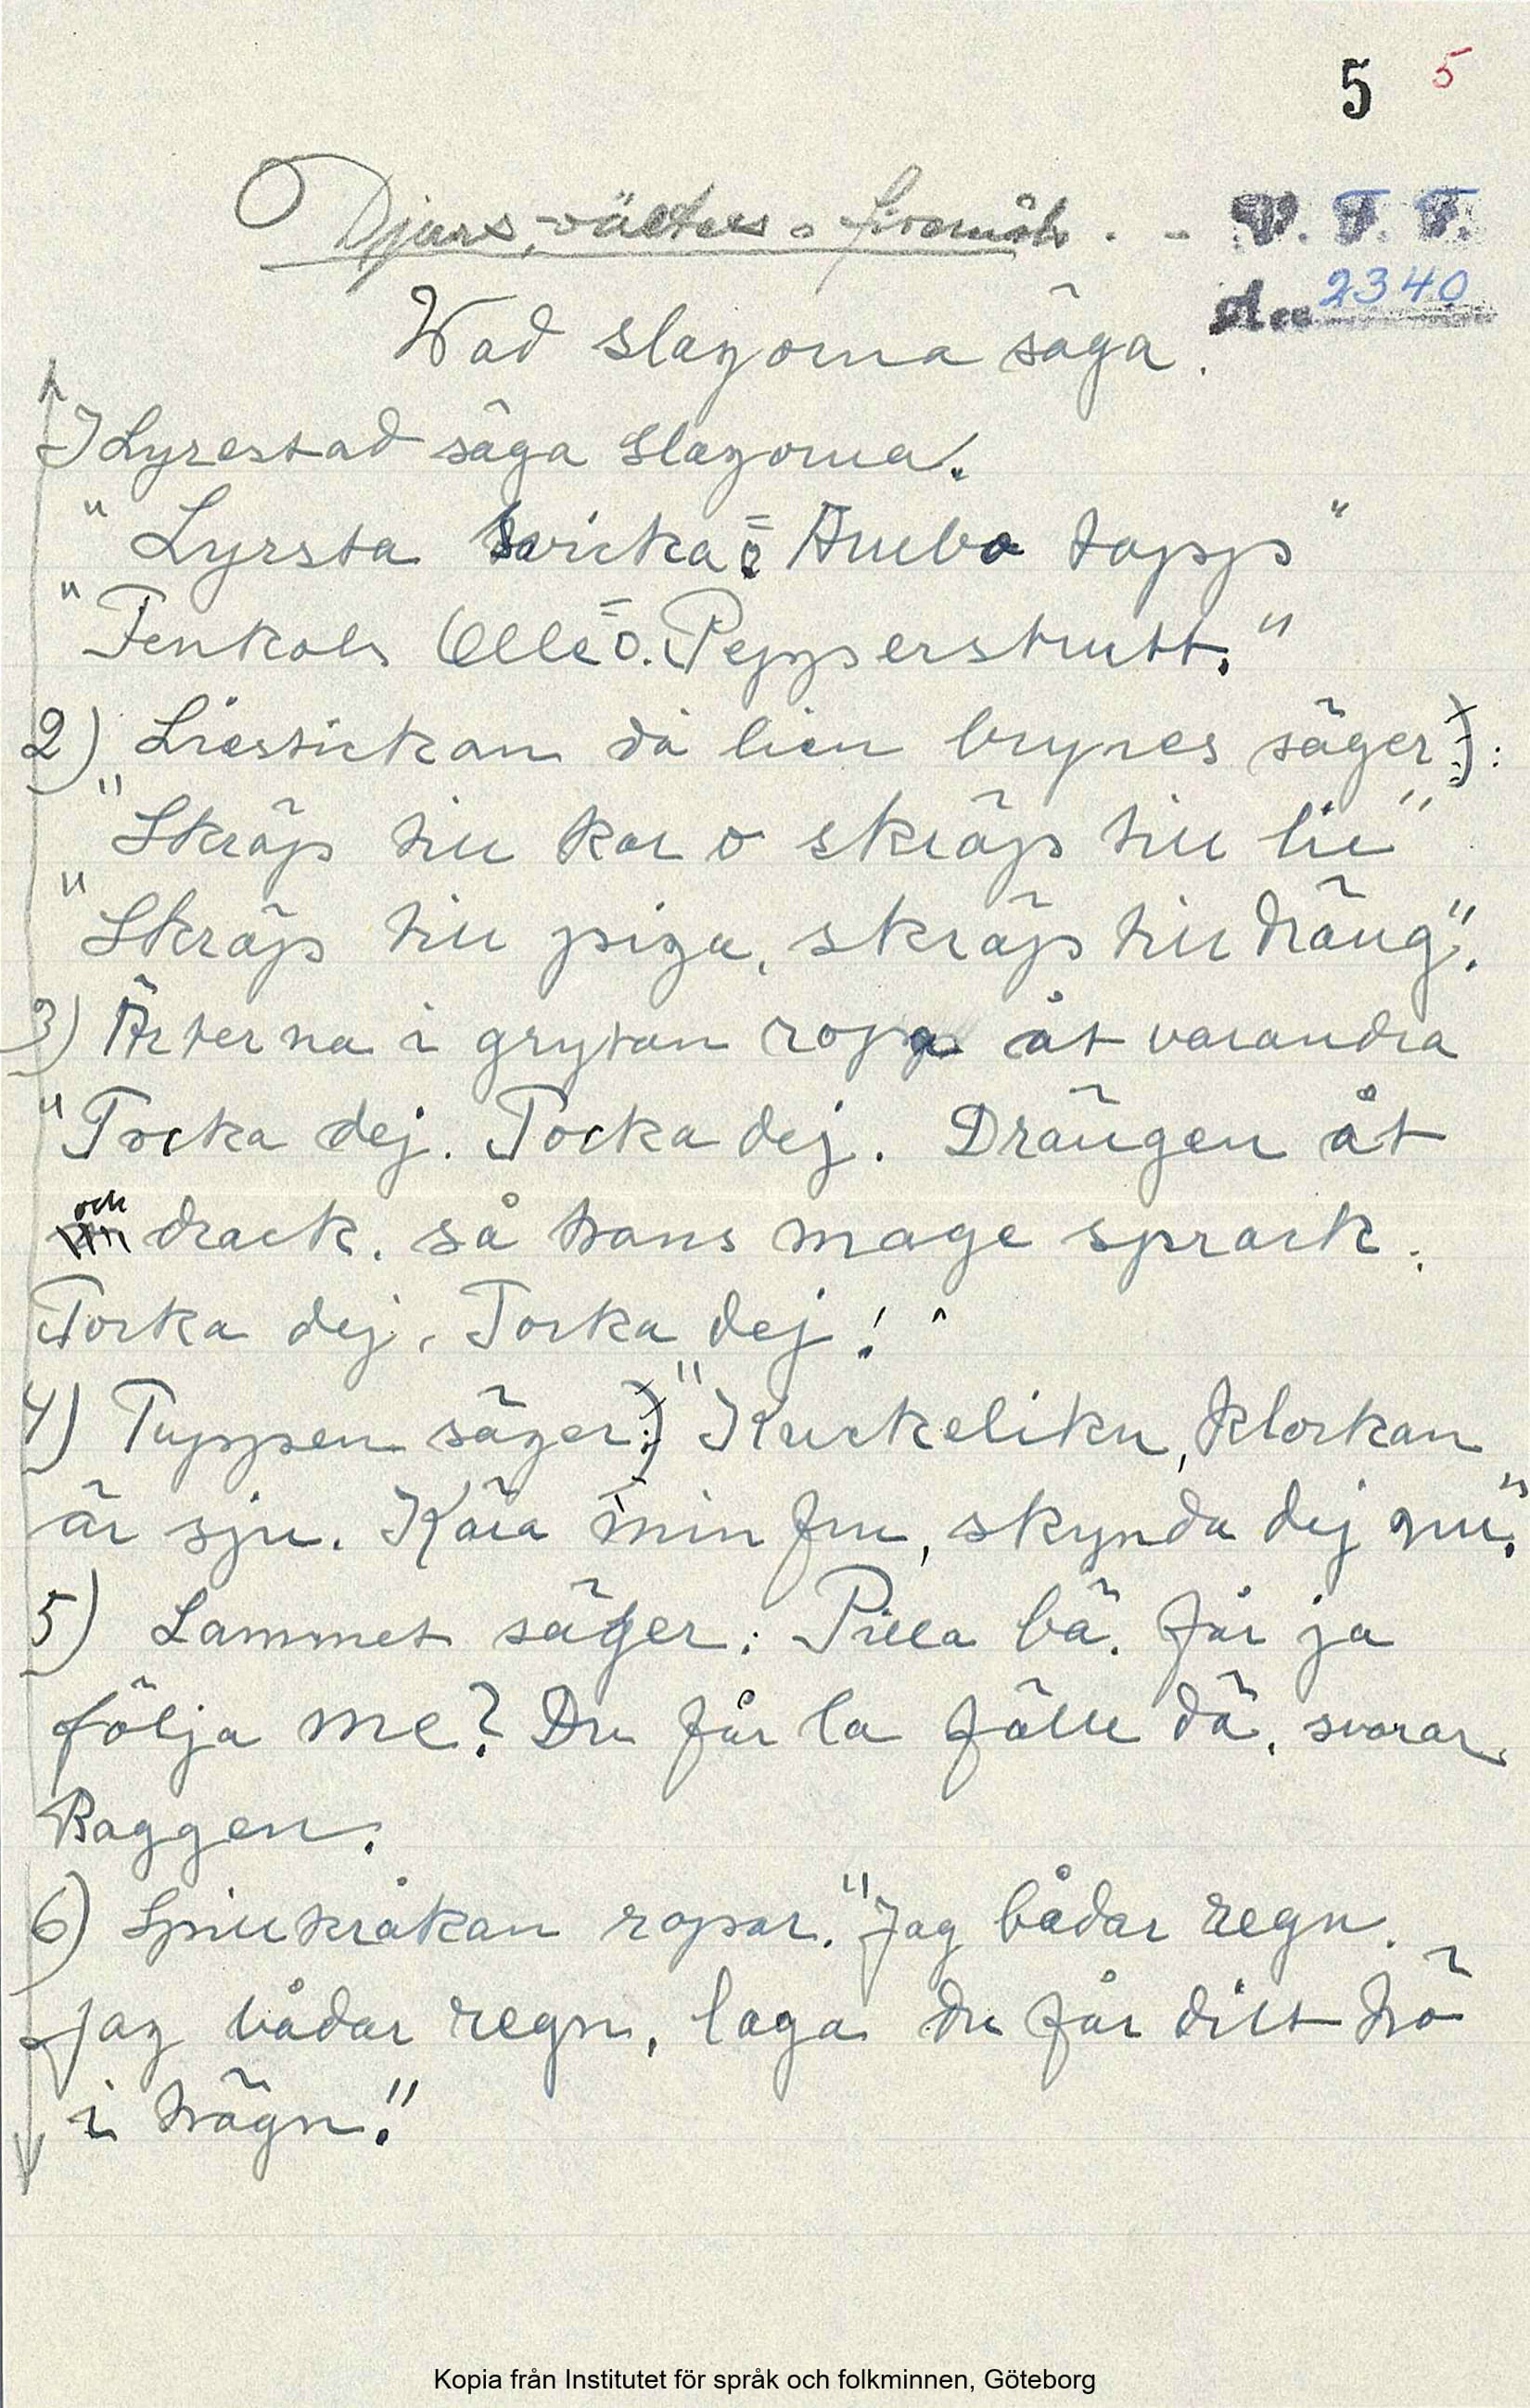 5 5
Djurs, växters o föremåls. -
V. F. F.
Acc 2340
Wad slagorna säga.
I Lyrestad säga slagorna.
" Lyrsta svicka o Amebo tapp "
" Fenkols Olle o. Pepperstrutt."
2) Liestickan då lien brynes säger :
" Skräp till kar o skräp till lie "
" Skräp till piga, skräp till dräng".
3) Ärterna i grytan ropa åt varandra
" Tocka dej. Tocka dej. Drängen åt
och drack. så hans mage sprack.
Tocka dej, Tocka dej! "
4) Tuppen säger: " Kuckeliku, klockan
är sju. Kära min fru, skynda dej nu."
5) Lammet säger: Pilla bä. får ja
följa me? Du får la fälle dä, svarar
Baggen.
6) Spillkråkan ropar. "Jag bådar regn.
jag bådar regn, laga du får ditt hö
i hägn."
Kopia från Institutet för språk och folkminnen, Göteborg